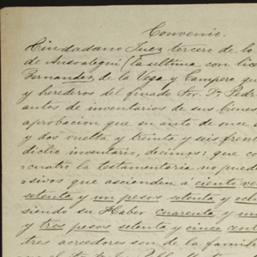 Convenio.
Ciudadano Juez tercero de lo
de Ansoategui (la ultima con lice
Fernandez de la Vega y Campero que
y herederos del finado Sr. Dn. Pedr
autos de inventarios de sus bienes
aprobacion que en auto de once
y dos vuelta y treinta y seis frent
dicho inventario, decimos: que co
cuatro la testamentaria no puede
sivos que ascienden á ciento ve
setenta y un pesos setenta y och
siendo su Haber cuarenta y un
y tres pesos setenta y cinco cent
tres acreedores son de la famili